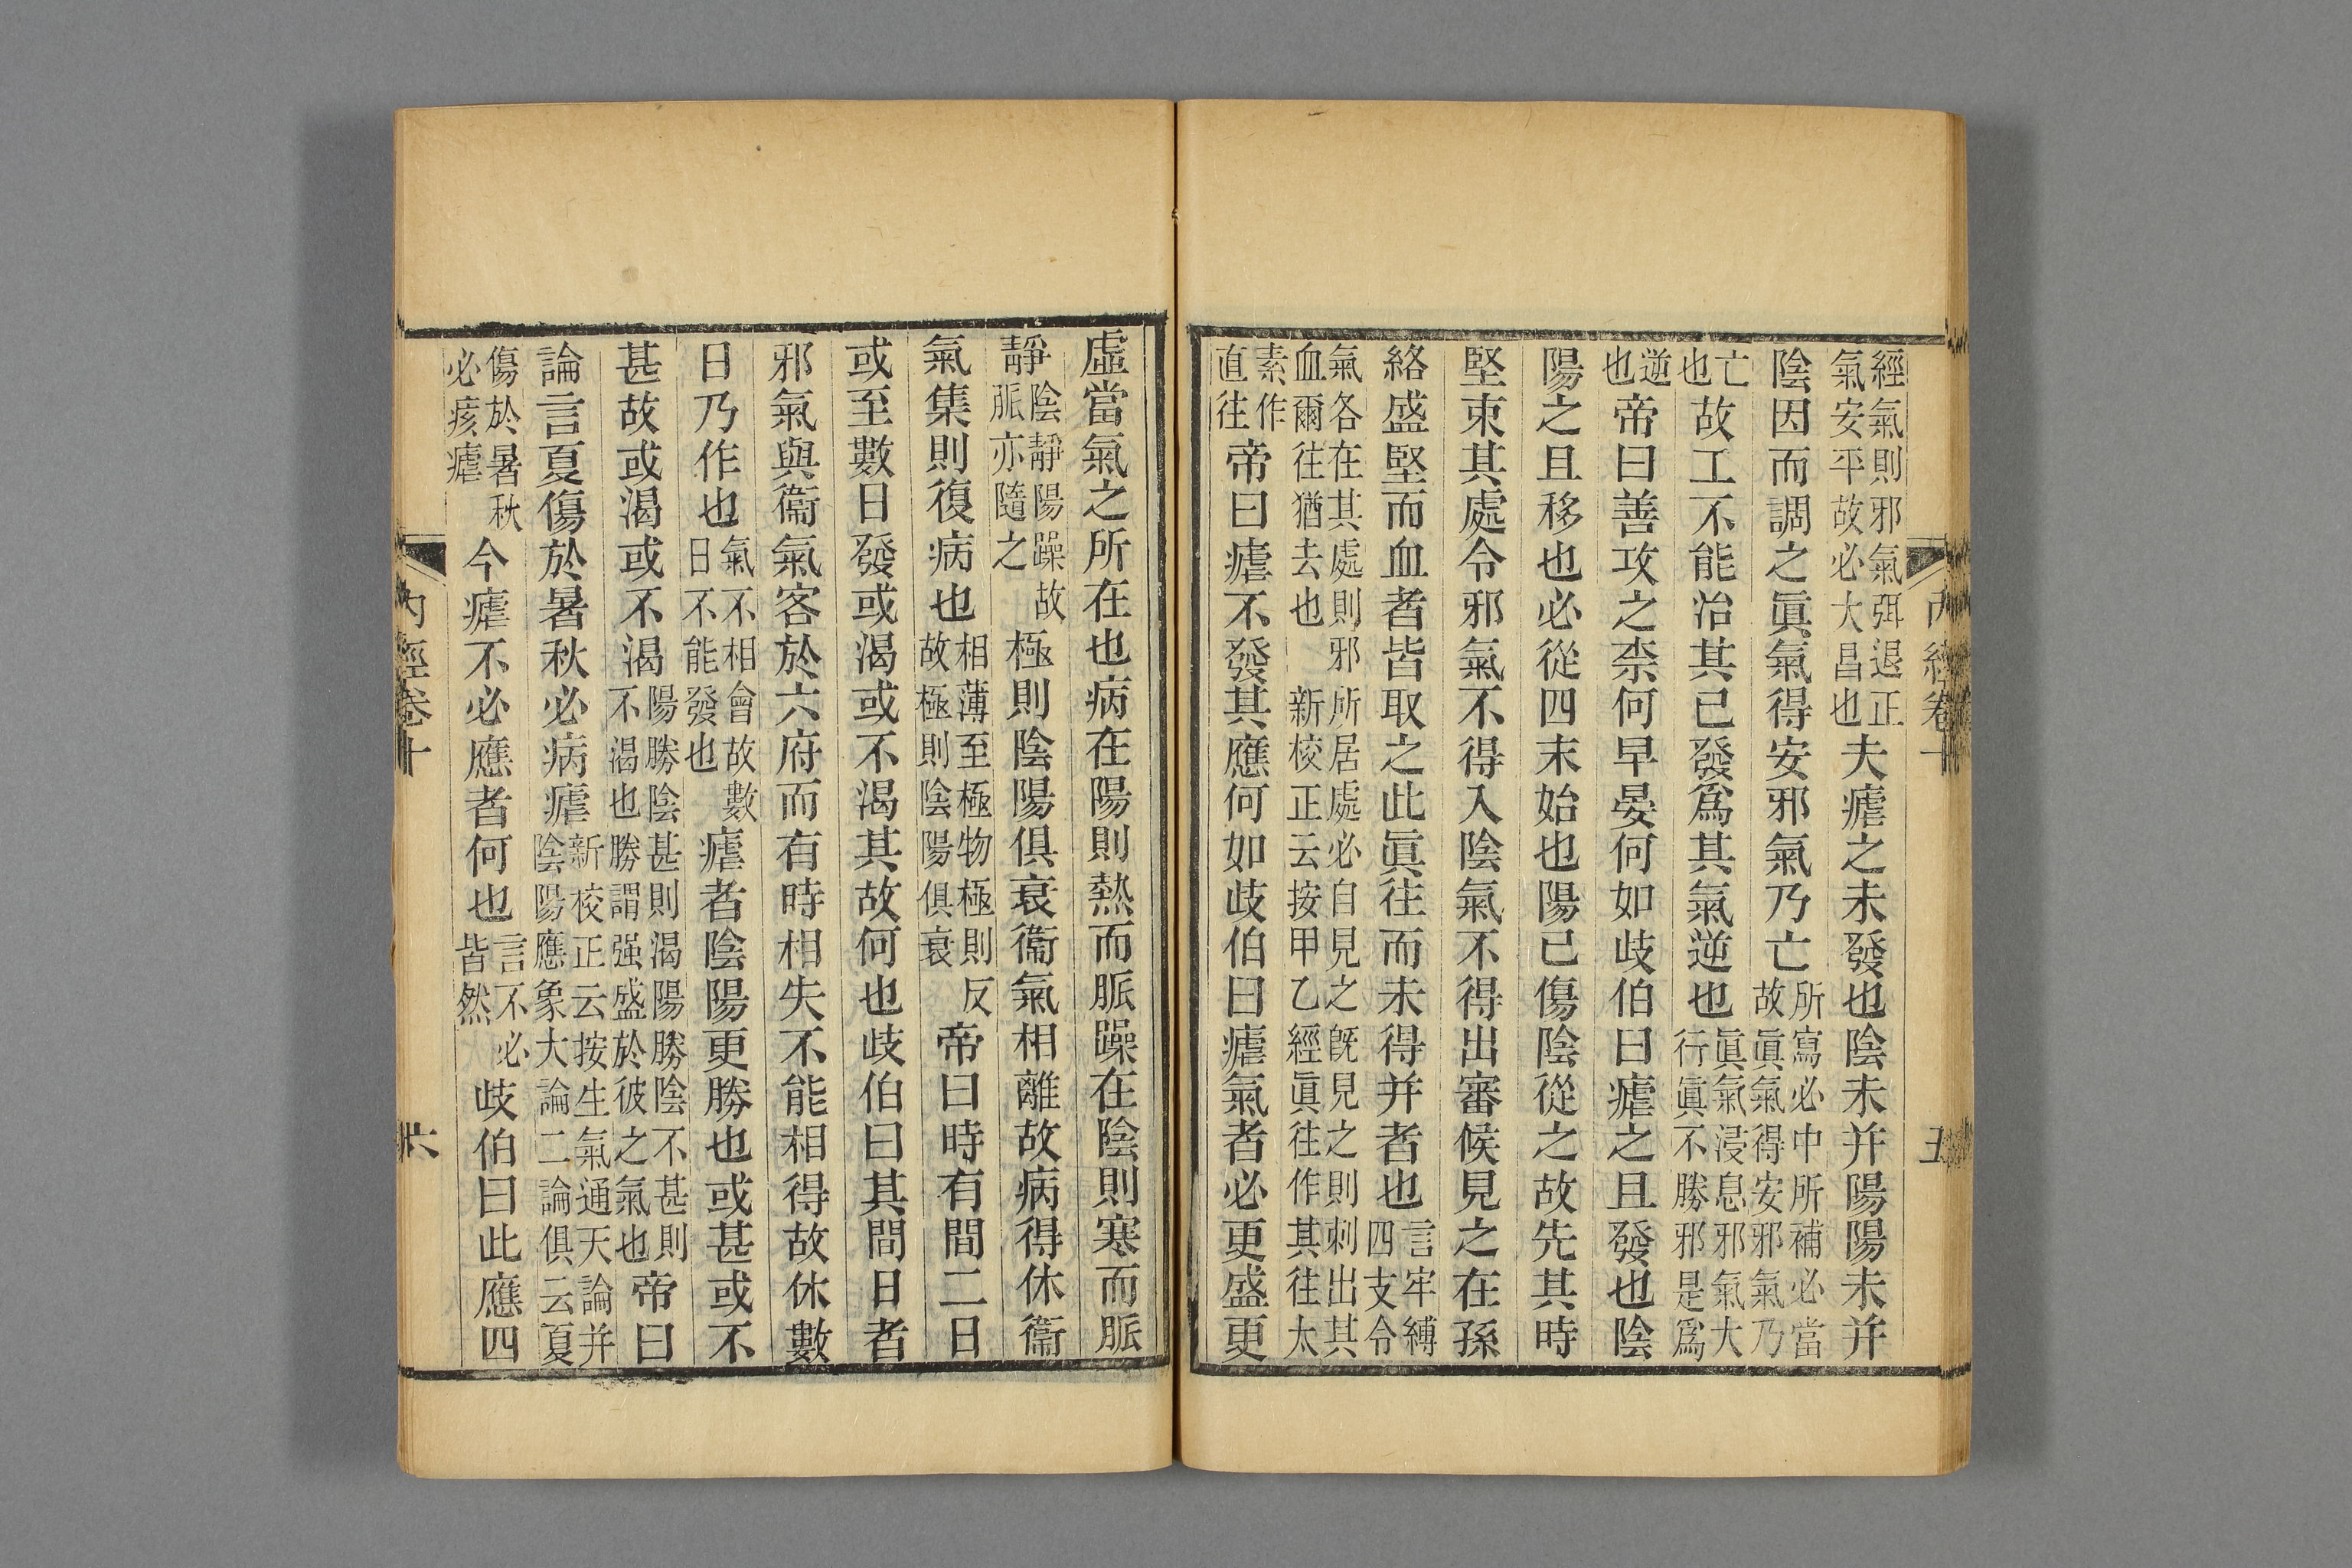 內經卷十
五
經氣則邪氣弭退正
氣安平故必大昌也
夫瘧之未發也陰未并陽陽未并
陰因而調之眞氣得安邪氣乃亡
所寫必中所補必當
故眞氣得安邪氣乃
亡
也
故工不能治其已發爲其氣逆也
眞氣浸息邪氣大
行眞不勝邪是爲
逆
也
帝曰善攻之柰何早晏何如歧伯曰瘧之且發也陰
陽之且移也必從四末始也陽已傷陰從之故先其時
堅束其處令邪氣不得入陰氣不得出審候見之在孫
絡盛堅而血者皆取之此眞往而未得并者也
言牢縛
四支令
氣各在其處則邪所居處必自見之旣見之則刺出其
血爾往猶去也 新校正云按甲乙經眞往作其往太
素作
直往
帝曰瘧不發其應何如歧伯曰瘧氣者必更盛更
虛當氣之所在也病在陽則熱而脈躁在陰則寒而脈
靜
陰靜陽躁故
脈亦隨之
極則陰陽俱衰衞氣相離故病得休衞
氣集則復病也
相薄至極物極則反
故極則陰陽俱衰
帝曰時有間二日
或至數日發或渴或不渴其故何也歧伯曰其間日者
邪氣與衞氣客於六府而有時相失不能相得故休數
日乃作也
氣不相會故數
日不能發也
瘧者陰陽更勝也或甚或不
甚故或渴或不渴
陽勝陰甚則渴陽勝陰不甚則
不渴也勝謂强盛於彼之氣也
帝曰
論言夏傷於暑秋必病瘧
新校正云按生氣通天論并
陰陽應象大論二論俱云夏
傷於暑秋
必痎瘧
今瘧不必應者何也
言不必
皆然
歧伯曰此應四
內經卷十
六